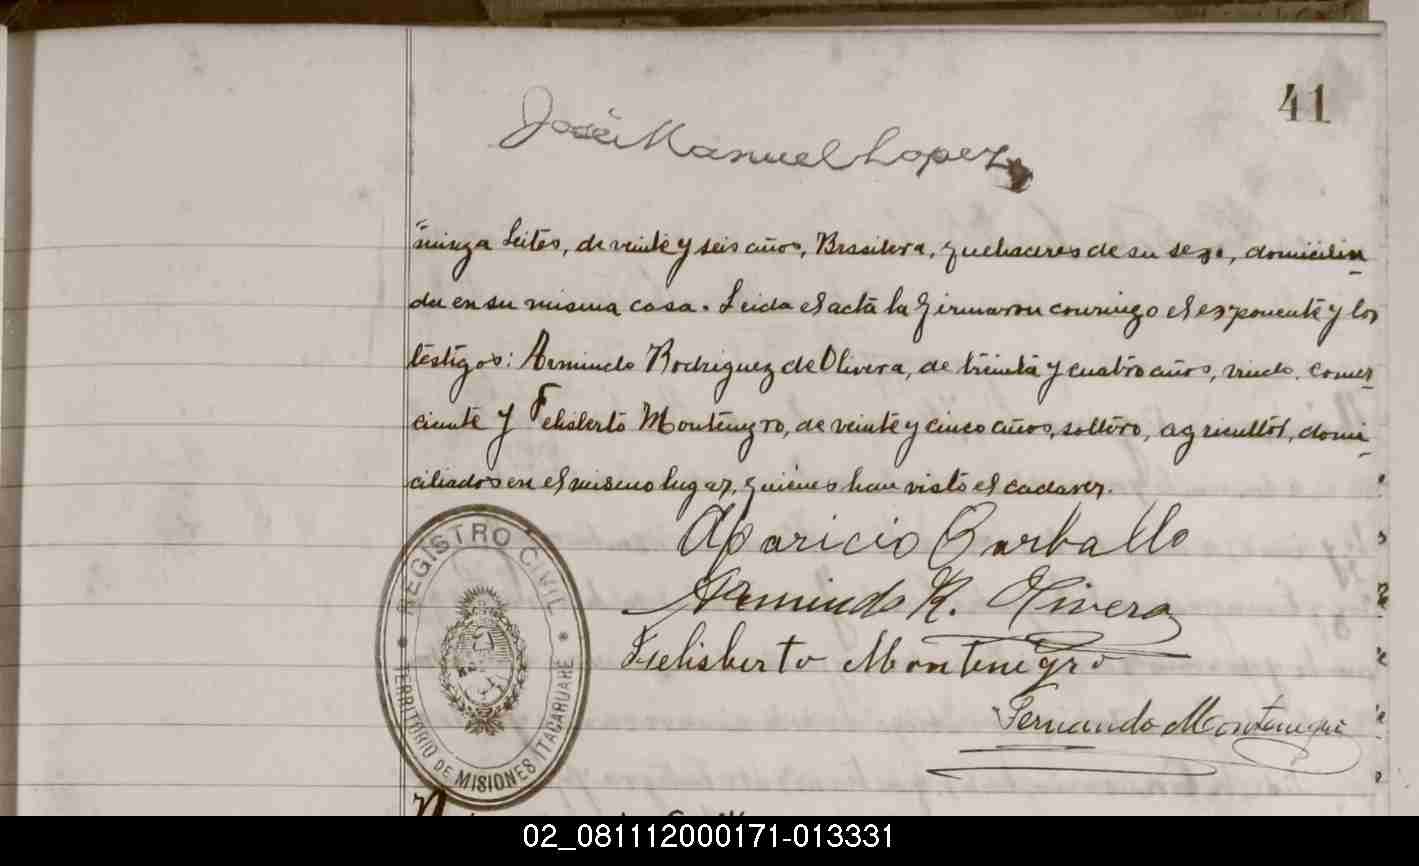 41
José Manuel Lopez
minga Leites, de veinte y seis años, Brasilera, quehaceres de su sexo, domicilia
da en su misma casa. Leida el acta la firmaron conmigo el esponente y los
testigos: Armindo Rodriguez de Olivera, de treinta y cuatro años, viudo, comer
ciante y Felisberto Montenegro, de veinte y cinco años, soltero, agricultor, domi
ciliados en el mismo lugar, quienes han visto el cadaver.
Aparicio Carballo
Armindo R. Olivera
Felisberto Montenegro
Fernando Montenegro
REGISTRO CIVIL
TERRITORIO DE MISIONES ITACARUARE
02_081112000171-013331